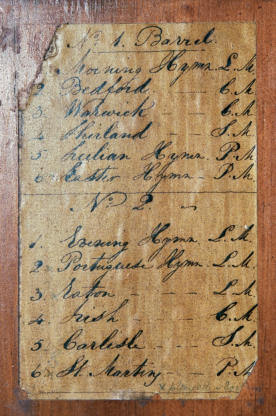 No. 1. Barrel.
Morning Hymn L.M.
2 Bedford - - C.M.
3 Warwick - C.M.
4 Shirland - - S.M.
5 Sicilian Hymn. P.M.
6 Easter Hymn - P.M.
No. 2 -
1. Evening Hymn L.M.
2. Portuguese Hymn. L.M.
3. Eaton - L.M.
4. Irish - C.M.
5. Carlisle - - S.M.
6. St. Martins - P.M.